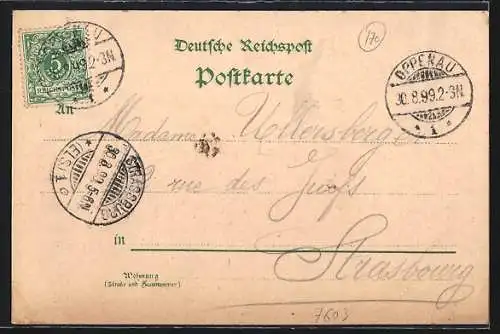 Deutsche Reichspost
Postkarte
170
OPPENAU
30.8.99.2-3N.
* 1 *
5
REICHSPOST
An
Madame Uttersberger
rue des Juifs
STRASSBURG
30.8.99.5-6N
* (ELS) 1 c
in
Strasbourg
Wohnung
(Straße und Hausnummer)
7603